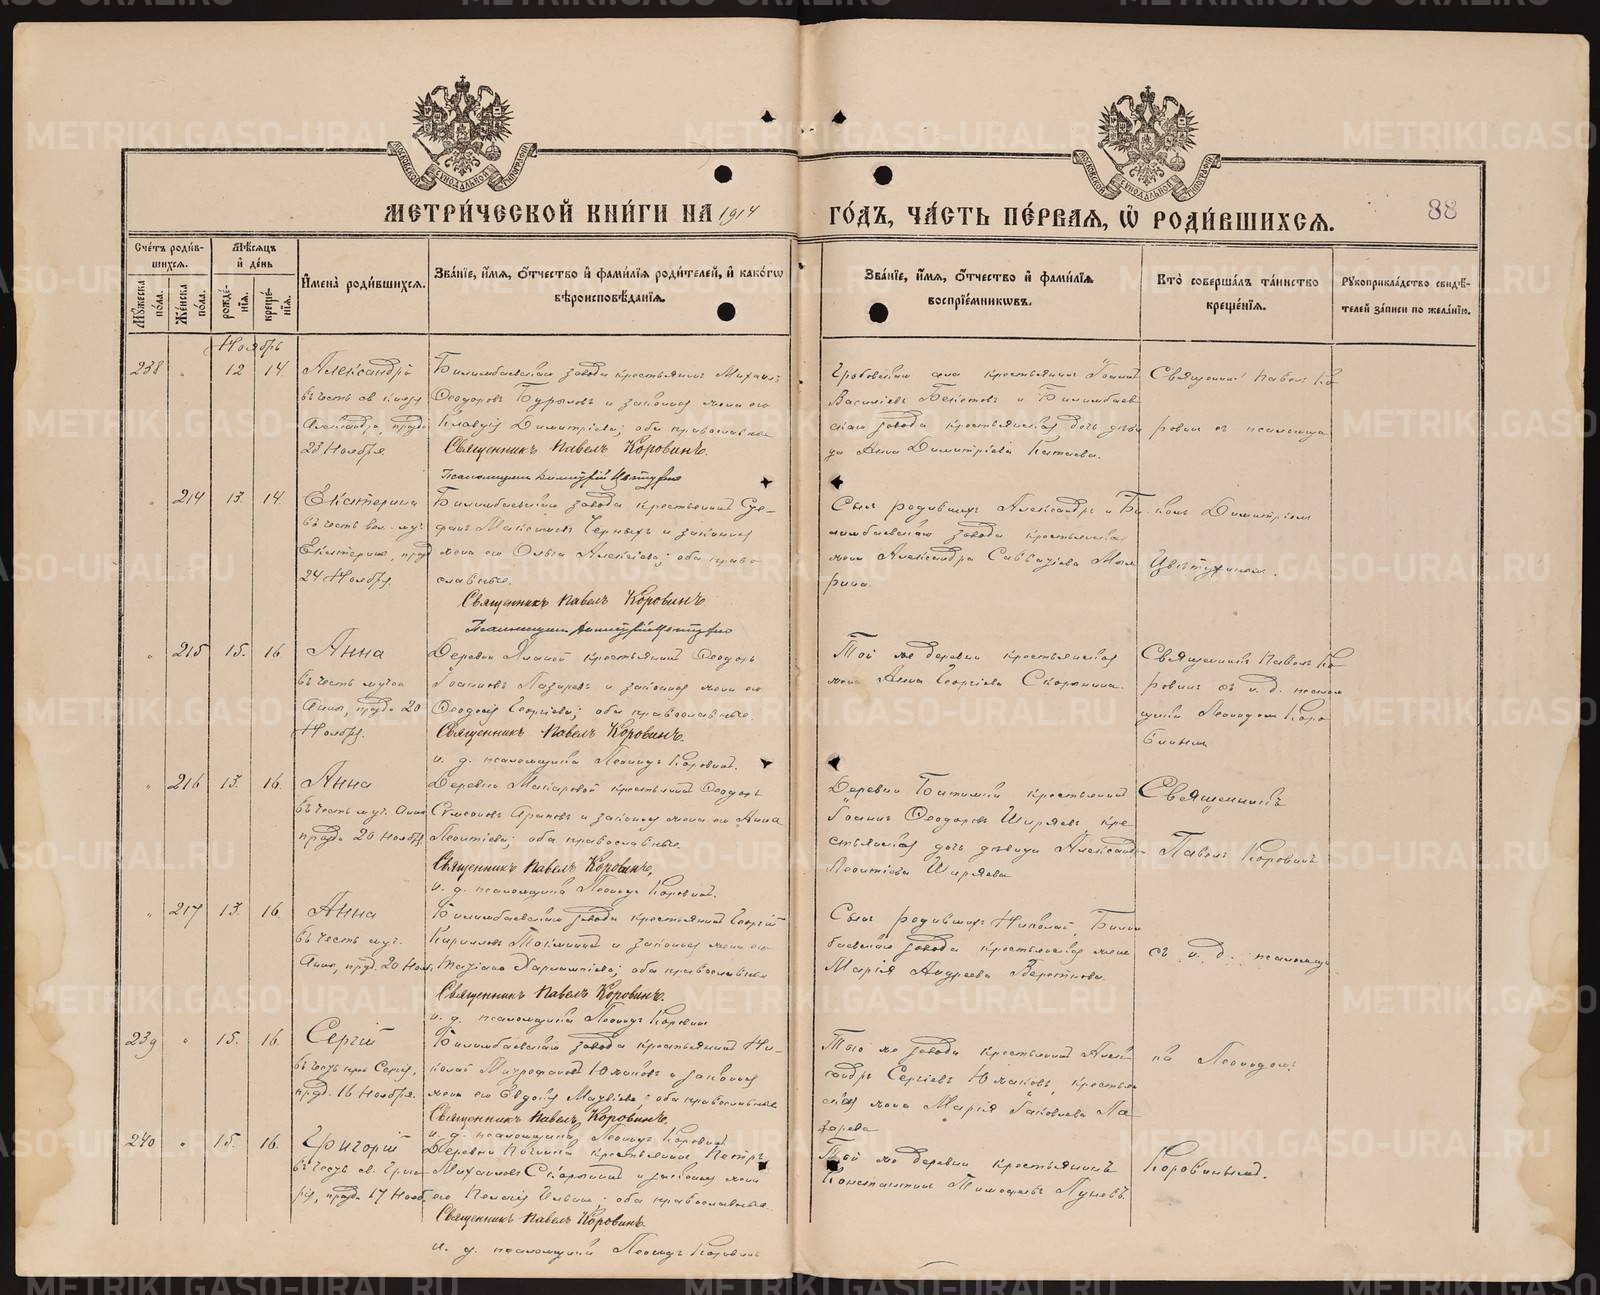 МЕТРИ́ЧЕСКОЙ КНИ́ГИ НА 1914
ГО́ДЪ, ЧА́СТЬ ПЕ́РВАЯ, Ѿ РОДИ́ВШИХСЯ.
88
Сче́тъ роди́в-
шихся.
Мꙋжеска по́ла.
Же́нска по́ла.
Мѣ́сяцъ
и҆ де́нь
рожде́-
нїя.
креще́-
нїя.
И҆мена̀ роди́вшихся.
Зва́нїе, и҆́мя, ѻ҆́тчество и҆ фами́лїя роди́телей, и҆ како́гѡ
вѣроисповѣ́данїя.
Зва́нїе, и҆́мя, ѻ҆́тчество и҆ фами́лїя
воспрїе́мникѡвъ.
Кто̀ соверша́лъ та́инство
креще́нїя.
Рꙋкоприкла́дство свидѣ́-
телей за́писи по жела́нїю.
Ноябрь
238 " 12 14 Александръ
въ честь св. князя
Александра, празд.
23 Ноября
Билимбаевскаго завода крестьянинъ Михаилъ
Ѳеодоровъ Бурыловъ и законная жена его
Клавдія Димитріева; оба православные
Священникъ Павелъ Коровинъ.
Псаломщикъ Димитрій Цвѣтухинъ
Гробовскаго села крестьянинъ Іоаннъ
Василіевъ Бекетовъ и Билимбаев-
скаго завода крестьянская дочь дѣви-
ца Анна Димитріева Катаева.
Священникъ Павелъ Ко-
ровинъ съ псаломщи-
" 214 13 14 Екатерина
въ честь вел. муч.
Екатерины, празд.
24 Ноября.
Билимбаевскаго завода крестьянинъ Сте-
фанъ Максимовъ Черныхъ и законная
жена его Ольга Алексіева; оба право-
славные.
Священникъ Павелъ Коровинъ
Псаломщикъ Димитрій Цвѣтухинъ
Сынъ родившихъ Александръ и Би-
лимбаевскаго завода крестьянская
жена Александра Савватіева
комъ Димитріемъ
Цвѣтухинымъ.
" 215 15. 16 Анна
въ честь мучен.
Анны, празд. 20
Ноября.
Деревни крестьянинъ Ѳеодоръ
Іоанновъ Лазаревъ и законная жена его
Ѳеодосія Георгіева; оба православные.
Священникъ Павелъ Коровинъ.
и. д. псаломщика Леонидъ Коровинъ.
Той же деревни крестьянская
жена Анна Георгіева Скорынина.
Священникъ Павелъ Ко-
ровинъ съ и. д. псалом-
щика Леонидомъ Коро-
винымъ
" 216 13. 16. Анна
въ честь муч. Анны
празд. 20 Ноября
Деревни Макаровой крестьянинъ Ѳеодоръ
Симеоновъ Араповъ и законная жена его Анна
Леонтіева; оба православные.
Священникъ Павелъ Коровинъ,
и. д. псаломщика Леонидъ Коровинъ.
Деревни Битимки крестьянинъ
Іоаннъ Ѳеодоровъ Ширяевъ, кре-
стьянская дочь дѣвица Александра
Леонтіева Ширяева
Священникъ
Павелъ Коровинъ
" 217 13. 16. Анна
въ честь муч.
Анны, празд. 20 Нояб.
Билимбаевскаго завода крестьянинъ Георгій
Кирилловъ и законная жена его
Татіана Харлампіева; оба православные
Священникъ Павелъ Коровинъ.
и. д. псаломщика Леонидъ Коровинъ
Сынъ родившихъ Николай, Билим-
баевскаго завода крестьянская жена
Марія Андреева
съ и. д. псаломщи-
239 " 15. 16. Сергій
въ честь Сергія,
празд. 16 Ноября.
Билимбаевскаго завода крестьянинъ Ни-
колай Митрофановъ Южаковъ и законная
жена его Евдокія; оба православные
Священникъ Павелъ Коровинъ.
и. д. псаломщика Леонидъ Коровинъ
Того же завода крестьянинъ Алек-
сандръ Сергіевъ Южаковъ, крестьян-
ская жена Марія Іаковлева Ла-
зарева
ка Леонидомъ
240 " 15. 16. Григорій
въ честь св. Григо-
рія, празд. 17 Нояб.
Деревни крестьянинъ Петръ
Михаиловъ Скорынинъ и законная жена
его Пелагія; оба православные
Священникъ Павелъ Коровинъ
и. д. псаломщика Леонидъ Коровинъ
Той же деревни крестьянинъ
Константинъ Тимоѳеевъ Луневъ.
Коровинымъ.
METRIKI.GASO-URAL.RU